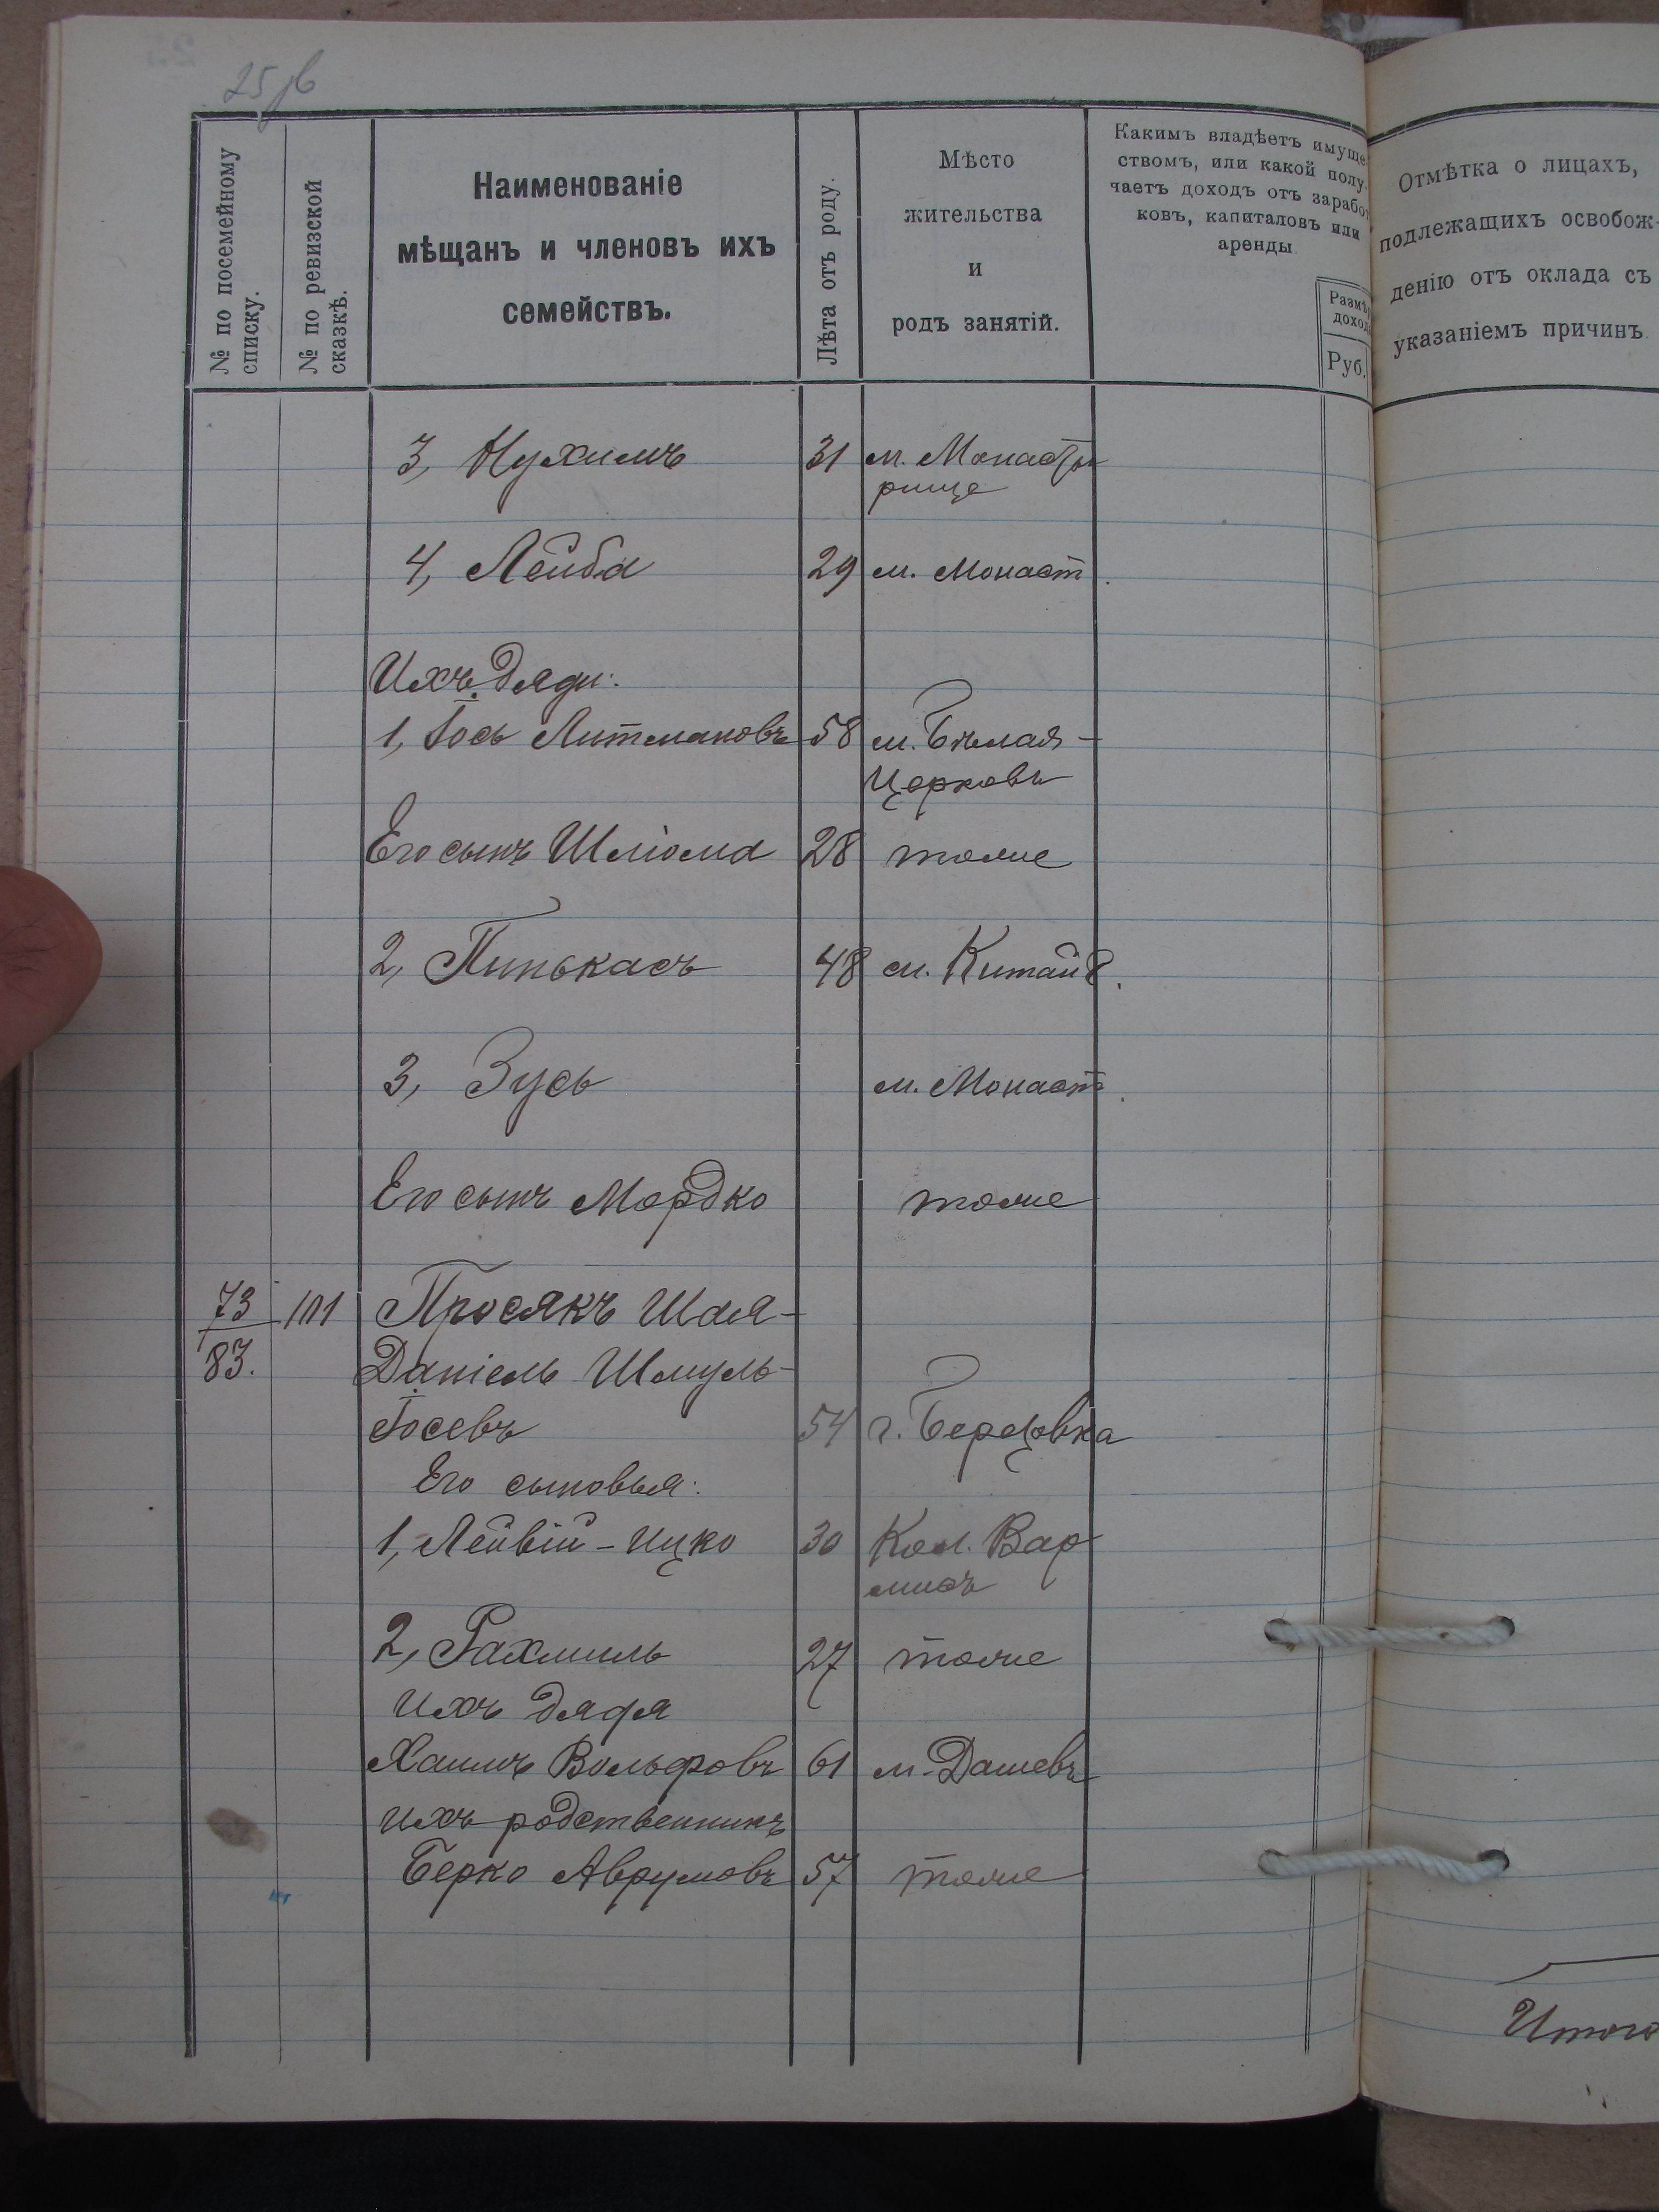 25 зв
№ по посемейному списку.
№ по ревизской сказкѣ.
Наименованіе
мѣщанъ и членовъ ихъ
семействъ.
Лѣта отъ роду.
Мѣсто
жительства
и
родъ занятій.
Какимъ владѣетъ имуще
ствомъ, или какой полу
чаетъ доходъ отъ зарабо
ковъ, капиталовъ или
аренды
Размѣ
доход
Руб.
Отмѣтка о лицахъ,
подлежащихъ освобож-
денію отъ оклада съ
указаніемъ причинъ.
3, Нухимъ 31 м. Монасты
рище
4, Лейба 29 м. Монаст.
Ихъ дяди:
1, Іось Литмановъ 58 м. Бѣлая-
Церковь
Его сынъ Шліома 28 тоже
2, Пинькасъ 48 м. Китайг.
3, Зусь м. Монаст.
Его сынъ Мордко тоже
73 101 Просякъ Шая-
83. Даніель Шмуль-
Іосевъ 54 г. Березовка
Его сыновья:
1, Лейвій-Ицко 30 Кол. Вар
мисъ
2, Рахмиль 27 тоже
Ихъ дядя
Хаимъ Вольфовъ 61 м. Дашевъ
Ихъ родственникъ
Берко Аврумовъ 57 тоже
Итого